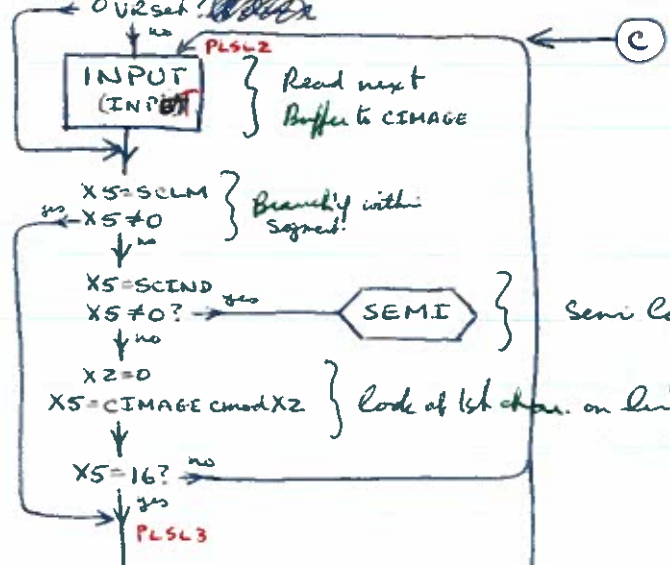 OVRset?
no
PLSL2
C
INPUT
(INPUT
Read next
Buffer to CIMAGE
X5=SCLM
yes X5≠0
no
Branch if within
Segment.
X5=SCIND
X5≠0? yes
no
SEMI
Semi
X2=0
X5=CIMAGE cmod X2
Look at 1st char. on
X5=16? no
yes
PLSL3